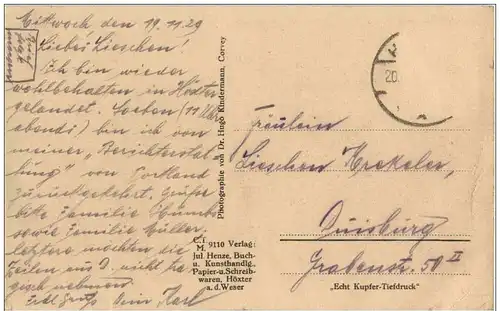 Mittwoch den 19.11.29
Liebes Lieschen!
Ich bin wieder
wohlbehalten in Höxter
gelandet. Soeben (11 Uhr
abends) bin ich von
meiner "Berichterstat-
tung" von
zurückgekehrt. grüße
bitte Familie
sowie Familie Müller.
letztere möchten die
Zeilen aus D. nicht ha
Karl
Photographie von Dr. Hugo Kindermann, Corvey
C. f.
M. 9110 Verlag:
Jul. Henze, Buch-
u. Kunsthandlg.
Papier-u.Schreib-
waren, Höxter
a. d. Weser
20.
Fräulein
Lieschen
Duisburg
Grabenstr. 50 II
„Echt Kupfer-Tiefdruck"